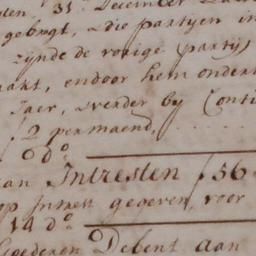 31 December
gebragt, & die partyen in
zynde de vorige party
aakt, en door hem ondert
Jaer, & verder by Conti
ƒ 2 per maend,
6 do
aan Intresten ƒ 56
op Intrest gegeven, voor
14 do
Goederen Debent aan